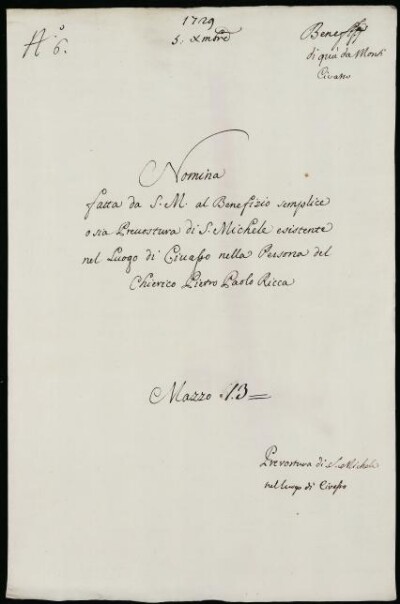 1729
5. Xmbre
N.° 6.
Benefizj
di quà da Monti
Civasso
Nomina
fatta da S. M. al Benefizio semplice
o sia Prevostura di S. Michele esistente
nel Luogo di Civasso nella Persona del
Chierico Pietro Paolo Ricca
Mazzo 13
Prevostura di S. Michele
nel luogo di Civasso